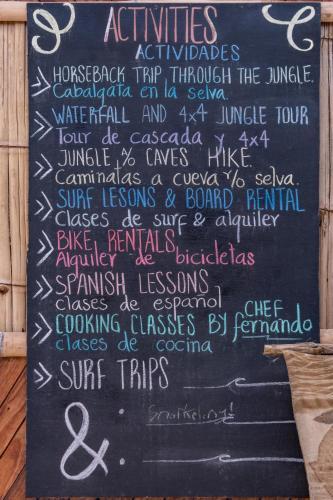 ACTIVITIES
ACTIVIDADES
HORSEBACK TRIP THROUGH THE JUNGLE.
Cabalgata en la selva.
WATERFALL AND 4x4 JUNGLE TOUR
Tour de cascada y 4x4
JUNGLE % CAVES HIKE.
Caminatas a cueva % selva.
SURF LESONS & BOARD RENTAL
Clases de surf & alquiler
BIKE RENTALS
Alquiler de bicicletas
SPANISH LESSONS
clases de español
COOKING CLASSES BY CHEF fernando
clases de cocina
SURF TRIPS
&:
Snorkeling!